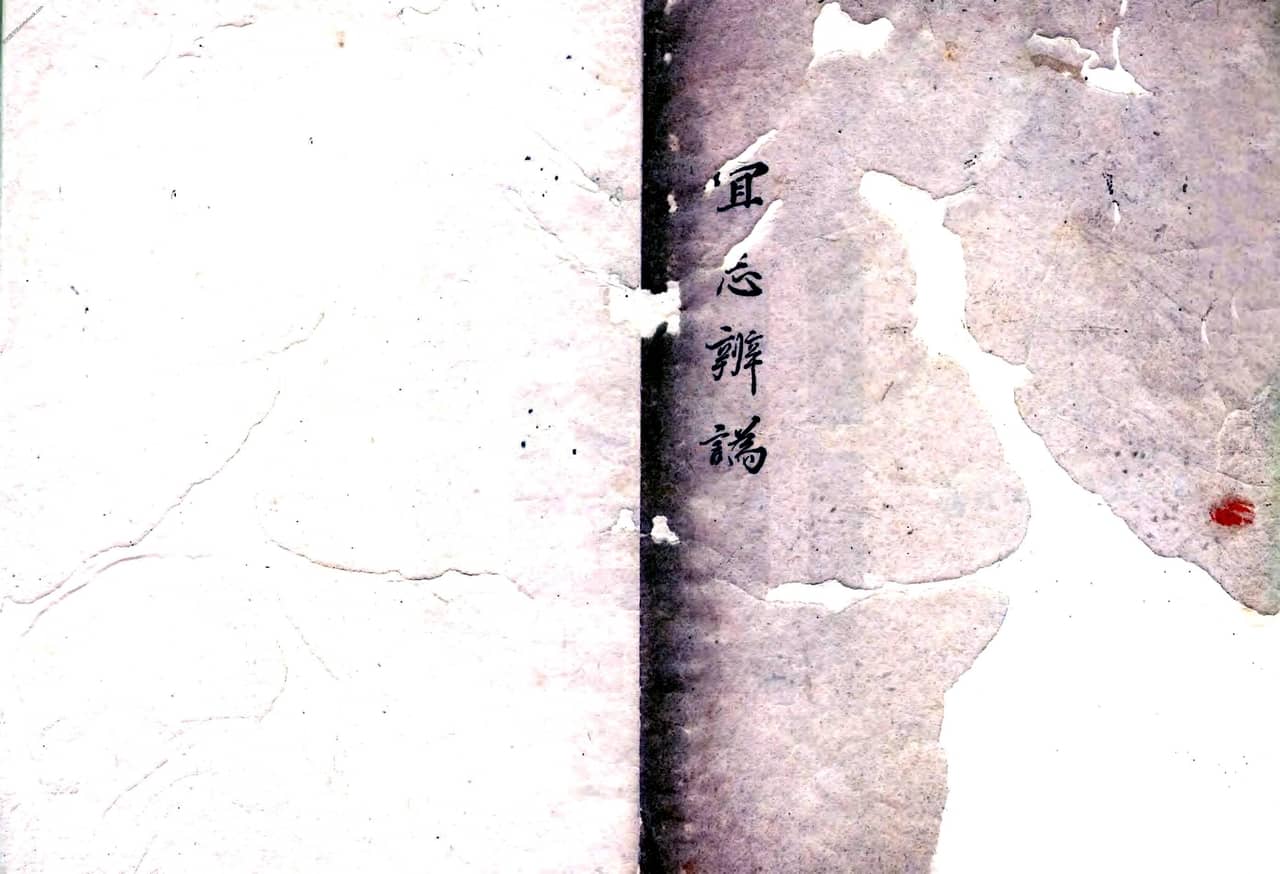 宜忌辨譌